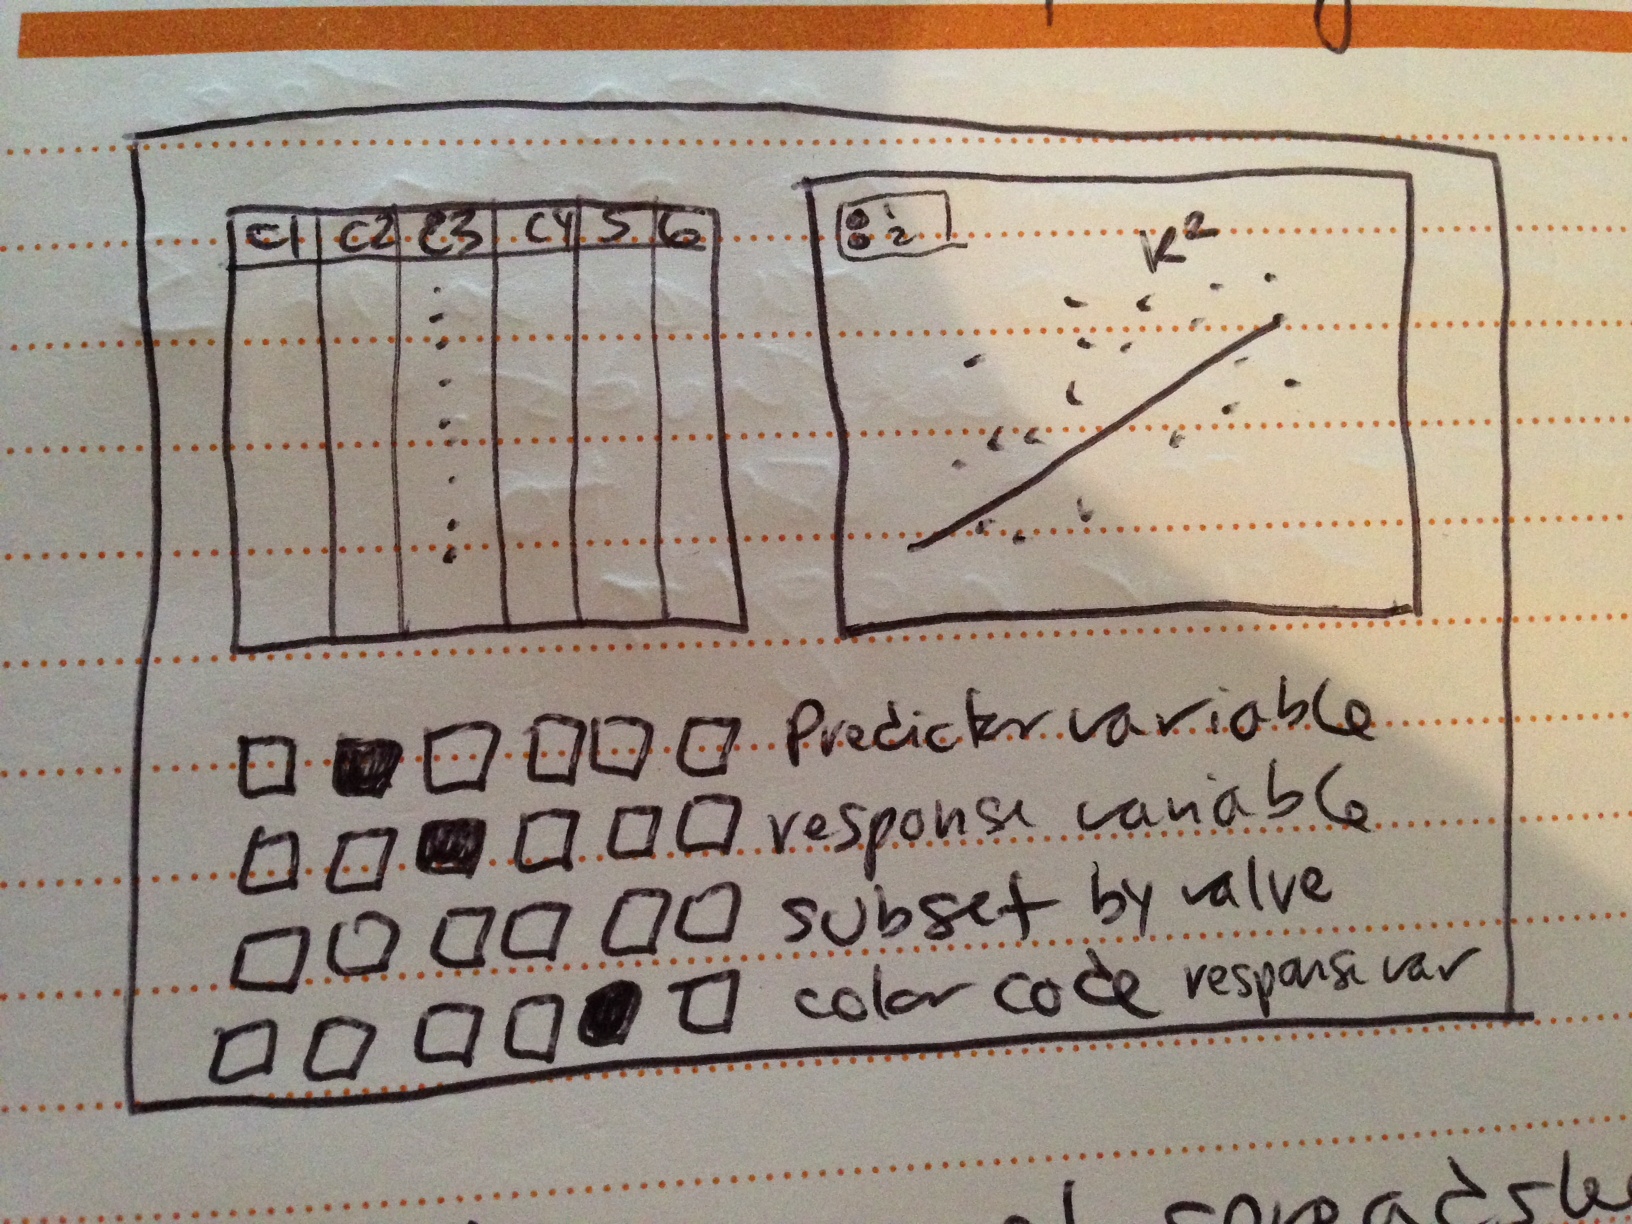 C1 C2 C3 C4 5 6
1
2
R²
Predictor variable
response variable
subset by value
color code response var